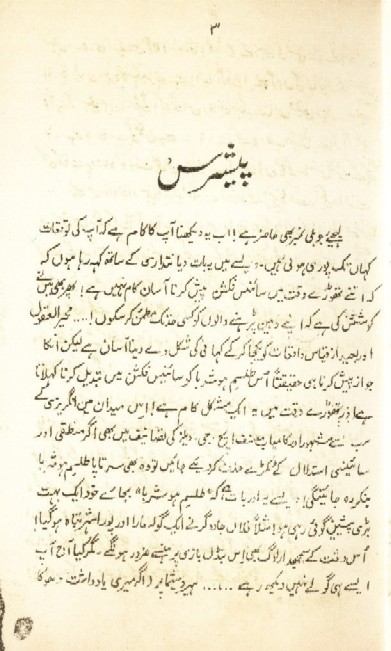 ۳
پیشرس
لیجئے جوبلی نمبر بھی حاضر ہے! اب یہ دیکھنا آپ کا کام ہے کہ آپ کی توقعات
کہاں تک پوری ہوئی ہیں۔ ویسے میں یہ بات دیانتداری کے ساتھ کہہ رہا ہوں کہ
اتنے تھوڑے وقت میں سائنس فکشن پیش کرنا آسان کام نہیں ہے! پھر بھی میں نے
کوشش کی ہے کہ اپنے ذہین پڑھنے والوں کو کسی حد تک مطمئن کر سکوں!.... محیر العقول
اور بعید از قیاس واقعات کو یکجا کر کے کہانی کی شکل دے دینا آسان ہے لیکن انکا
جواز پیش کرنا ہی حقیقتاً اس طلسم ہوشربا کو سائنس فکشن میں تبدیل کرنا کہلاتا
ہے! اور تھوڑے وقت میں یہ ایک مشکل کام ہے! اس میدان میں انگریزی کے
سب سے مشہور اور کامیاب مصنف ایچ۔ جی۔ ویلز کی تصانیف میں بھی اگر منطقی اور
سائینسی استدلال کے ٹکڑے حذف کر دیئے جائیں تو وہ بھی سرتاپا طلسم ہوشربا
بنکر رہ جائینگی! ویسے یہ اور بات ہے کہ "طلسم ہوشربا" بجائے خود ایک بہت
بڑی پیشین گوئی رہی ہو! مثلاً فلاں جادوگر نے ایک گولہ مارا اور پورا شہر تباہ ہو گیا!
اس وقت کے سمجھدار لوگ بھی اس پر ہنسے ضرور ہونگے مگر کیا آج آپ
ایسے ہی گولے نہیں دیکھ رہے ...... ہیروشیما پر (اگر میری یادداشت دھوکا